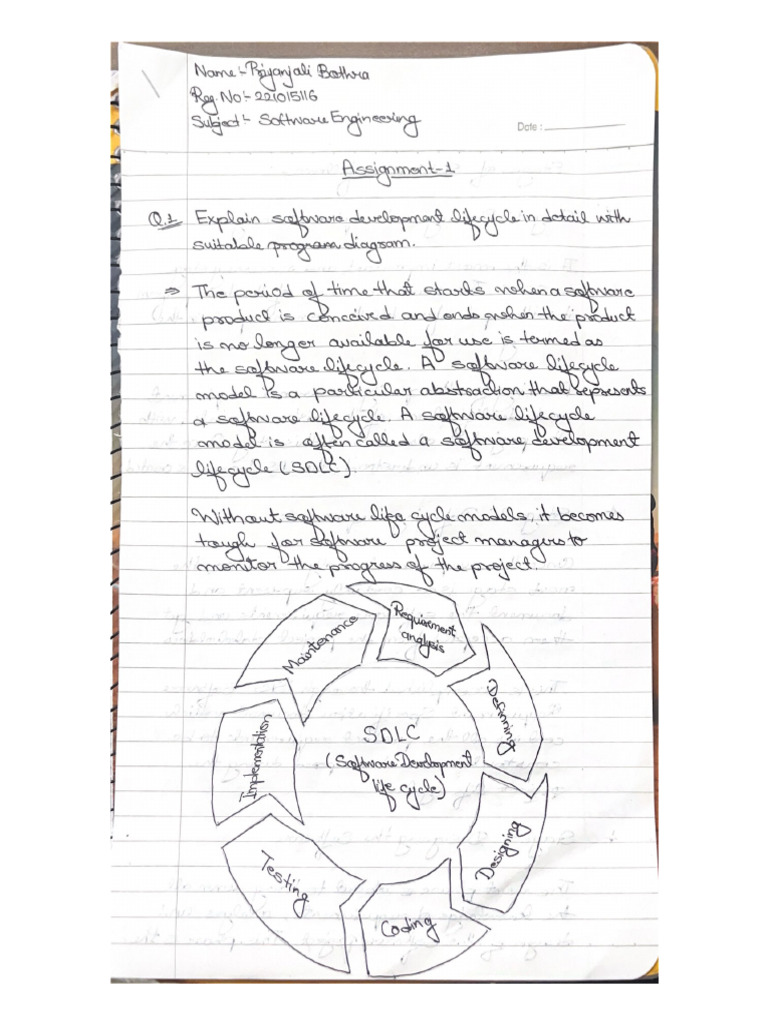 Name:- Priyanjali Bothra
Reg. No:- 221015116
Subject:- Software Engineering
Date :
Assignment-1
Q.1 Explain software development lifecycle in detail with
suitable program diagram.
⇒ The period of time that starts when a software
product is conceived and ends when the product
is no longer available for use is termed as
the software lifecycle. A software lifecycle
model is a particular abstraction that represents
a software lifecycle. A software lifecycle
model is often called a software development
lifecycle (SDLC).
Without software life cycle models, it becomes
tough for software project managers to
monitor the progress of the project.
Requirement
analysis
Definning
Designing
Coding
Testing
Implementation
Maintenance
SDLC
(Software Development
life cycle)